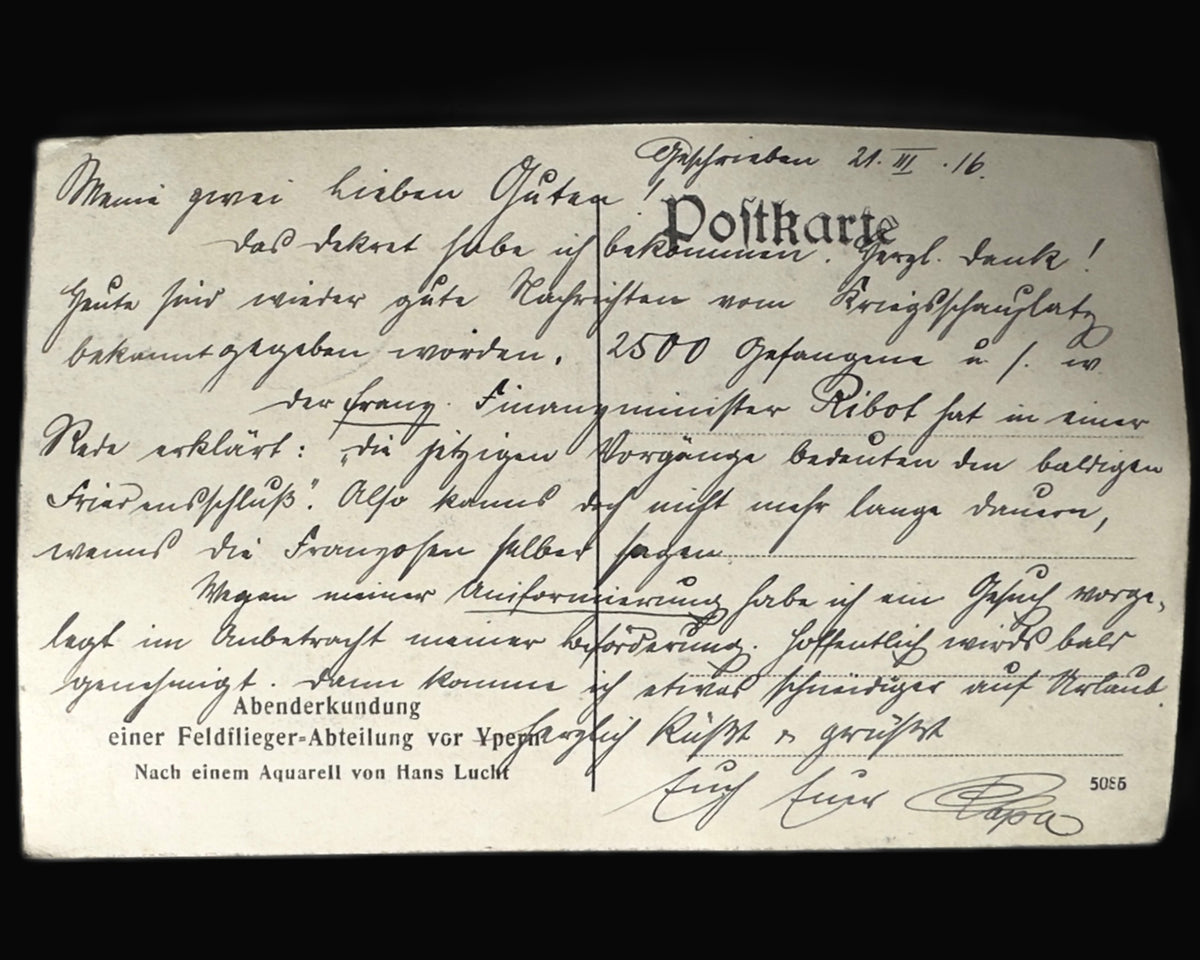 Geschrieben 21. III. 16.
Meine zwei lieben Guten!
Postkarte
Das Dekret habe ich bekommen. Herzl. Dank!
Heute sind wieder gute Nachrichten vom Kriegsschauplatz
bekanntgegeben worden. 2500 Gefangene u. s. w
Der franz. Finanzminister Ribot hat in einer
Rede erklärt: „Die jetzigen Vorgänge bedeuten den baldigen
Friedensschluß". Also kanns doch nicht mehr lange dauern,
wenns die Franzosen selber sagen
Wegen meiner Uniformierung habe ich ein Gesuch vorge-
legt im Anbetracht meiner Beförderung. Hoffentlich wirds bald
genehmigt. Dann komme ich etwas schneidiger auf Urlaub.
Abenderkundung
einer Feldflieger-Abteilung vor Ypern
Nach einem Aquarell von Hans Lucht
Herzlich küßt u grüßt
Euch Euer Papa
5086